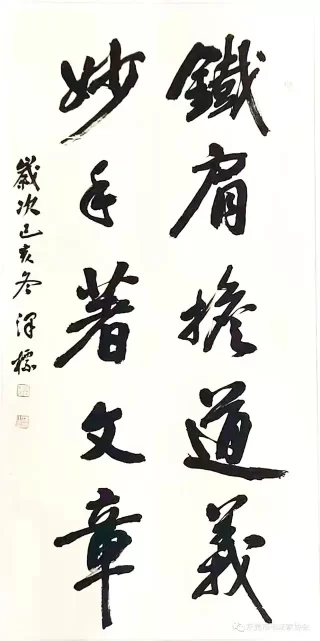 鐵肩擔道義
妙手著文章
歲次己亥冬澤標